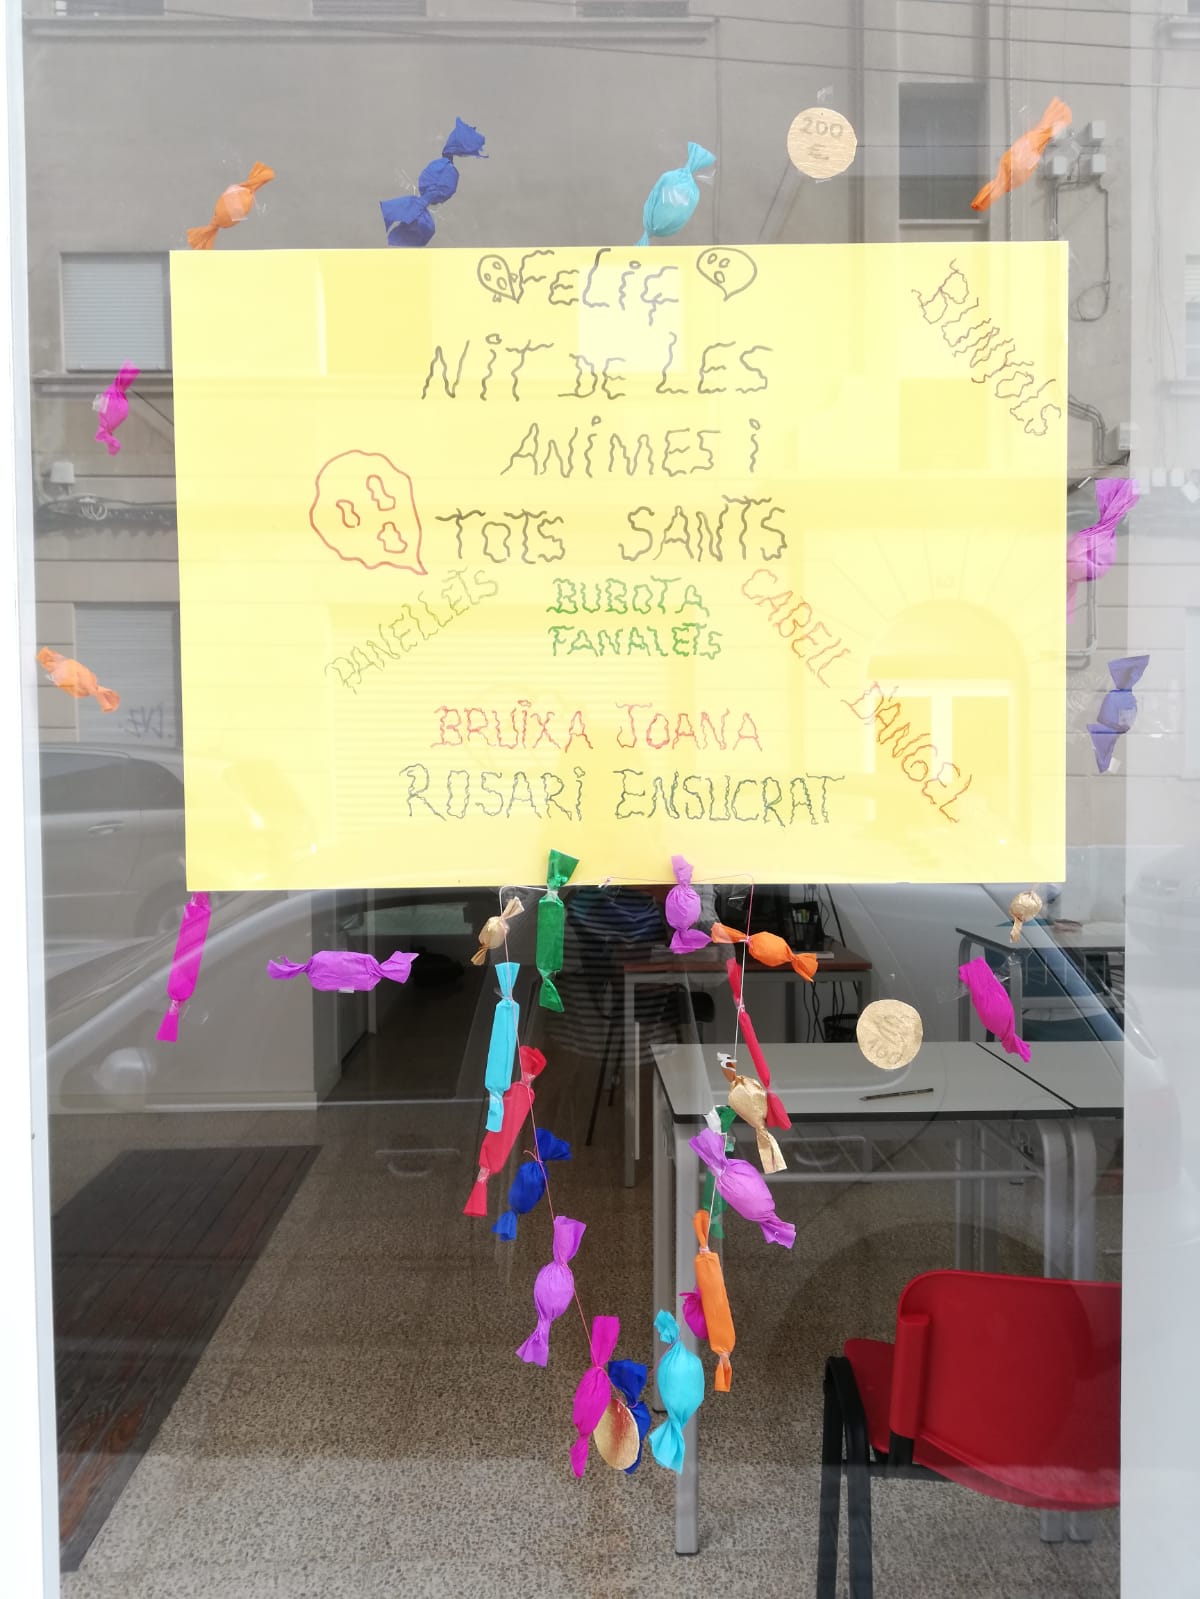 200
€
FELIÇ
NIT DE LES
ANIMES I
TOTS SANTS
BUNYOLS
PANELLETS
BUBOTA
FANALETS
CABELL D'ANGEL
BRUIXA JOANA
ROSARI ENSUCRAT
100